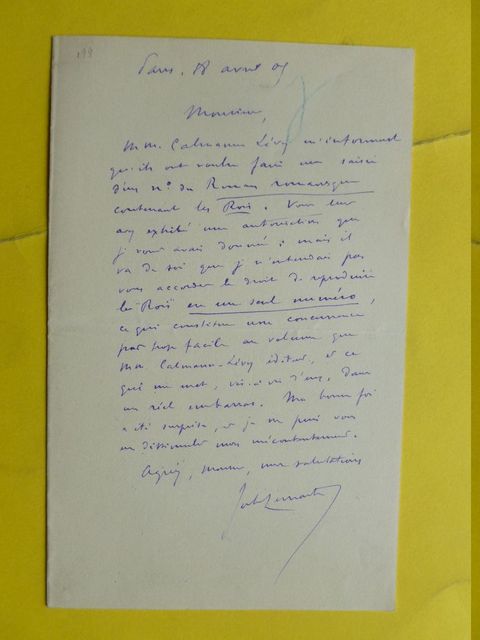 199
Paris, 18 avril 05
Monsieur,
MM. Calmann Lévy m'informent
qu'ils ont voulu faire une saisie
d'un n° du Roman romanesque
contenant les Rois. Vous leur
avez exhibé une autorisation que
je vous avais donnée : mais il
va de soi que je n'entendais pas
vous accorder le droit de reproduire
les "Rois" en un seul numéro,
ce qui constitue une concurrence
par trop facile au volume que
MM. Calmann-Lévy éditent, et ce
qui me met, vis-à-vis d'eux, dans
un réel embarras. Ma bonne foi
a été surprise, et je ne puis vous
en dissimuler mon mécontentement.
Agréez, Monsieur, mes salutations
Jules Lemaitre